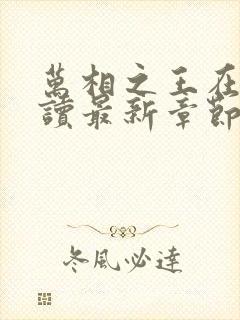 萬相之王在
讀最新章節
冬風必達